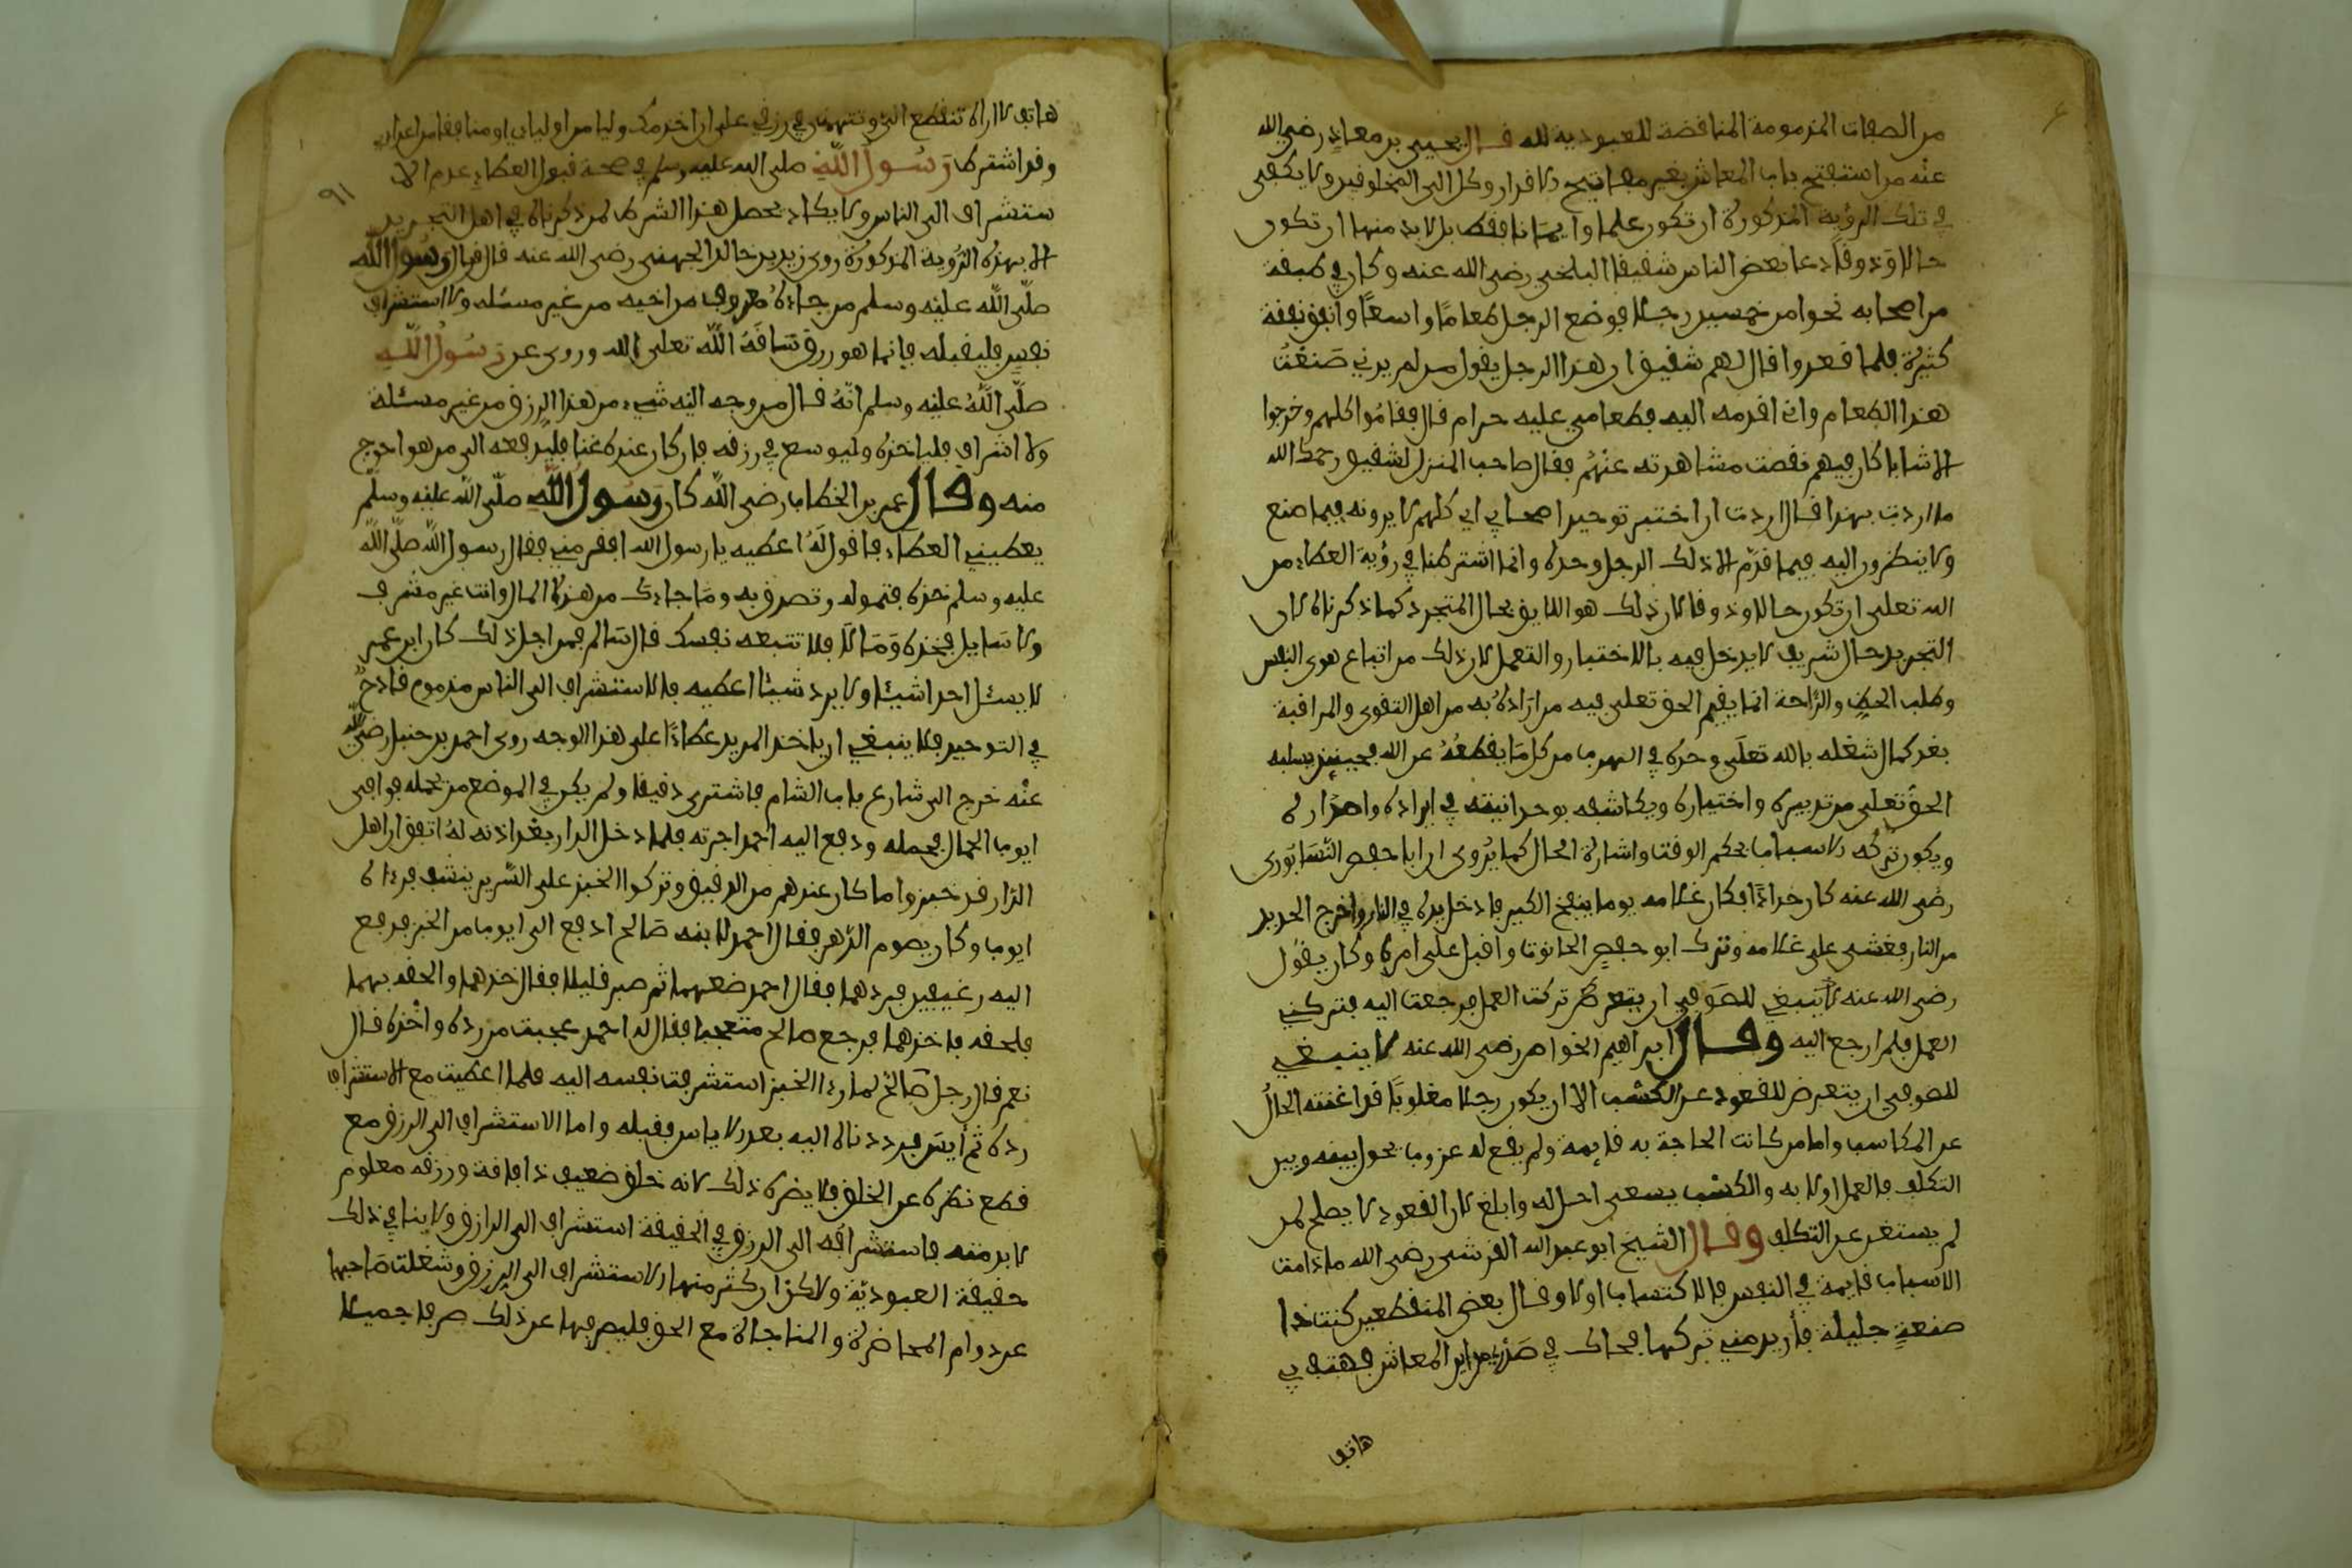 من الصفات المذمومة المناقضة للعبودية لله قال يحيى بن معاذ رضي الله
عنه من استفتح باب المعاش بغير مفاتيح الاقدار وكل الى المخلوقين ولا يكفي
في تلك الرؤية المذكورة ان تكون علما وايمانا فقط بل لا بد منها ان تكون
حالا وذوقا دعا بعض الناس شقيقا البلخي رضي الله عنه وكان في طبقة
من اصحابه نحوا من خمسين رجلا فوضع الرجل طعاما واسعا وانفق نفقة
كثيرة فلما قعدوا قال لهم شقيق ان هذا الرجل يقول من لم يرني صنعت
هذا الطعام واني اقدمه اليه فطعامي عليه حرام قال فقاموا كلهم وخرجوا
الا شابا كان فيهم نقصت مشاهدته عنهم فقال صاحب المنزل لشقيق رحمك الله
ما اردت بهذا قال اردت ان اختبر توحيد اصحابي اي كلهم لا يرونه فيما صنع
ولا ينظرون اليه فيما قدم الا ذلك الرجل وحده وانما اشترطنا في رؤية العطاء من
الله تعلى ان تكون حالا وذوقا لان ذلك هو اللايق بحال المتجرد كما ذكرناه لان
التجريد حال شريف لا يدخل فيه بالاختيار والتعمل لان ذلك من اتباع هوى النفس
وطلب الحظ والراحة انما يقيم الحق تعلى فيه من اراده به من اهل التقوى والمراقبة
بعد كمال شغله بالله تعلى وحده في الهرب من كل ما يقطعه عن الله فحينئذ يسلبه
الحق تعلى من تدبيره واختياره ويكاشفه بوحدانيته في ايراده واصداره
ويكون تركه الاسباب بحكم الوقت واشارة الحال كما يروى ان ابا حفص النيسابوري
رضي الله عنه كان حدادا فكان غلامه يوما ينفخ الكير فادخل يده في النار واخرج الحديد
من النار فغشي على غلامه وترك ابو حفص الحانوت واقبل على امره وكان يقول
رضي الله عنه لا ينبغي للصوفي ان يتعرض تركت العمل فرجعت اليه فتركني
العمل فلم ارجع اليه وقال ابراهيم الخواص رضي الله عنه لا ينبغي
للصوفي ان يتعرض للقعود عن الكسب الا ان يكون رجلا مغلوبا قد اغنته الحال
عن المكاسب واما من كانت الحاجة به قايمة ولم يقع له عزوب يحول بينه وبين
التكلف فالعمل اولا به والكسب يسعى احل له وابلغ لان القعود لا يصلح لمن
لم يستغن عن التكلف وقال الشيخ ابو عبد الله القرشي رضي الله ما دامت
الاسباب قايمة في النفس فالاكتساب اولا وقال بعض المنقطعين كنت ذا
صنعة جليلة فأريد مني تركها فحاك في صدري من اين المعاش فهتف بي
هاتف
هاتف لا اراه تنقطع الي وتتهمني في رزقي علي ان اخدمك وليا من اوليائي او منافقا من اعدائي
٩١
وقد اشترط رسول الله صلى الله عليه وسلم في صحة قبول العطاء عدم الا
ستشراف الى الناس ولا يكاد يحصل هذا الشرط لمن ذكرناه في اهل التجريد
الا بهذه الرؤية المذكورة روى زيد بن خالد الجهني رضي الله عنه قال قال رسول الله
صلى الله عليه وسلم من جاءه معروف من اخيه من غير مسئله ولا استشراف
نفس فليقبله فانما هو رزق ساقه الله تعلى الله وروى عن رسول الله
صلى الله عليه وسلم انه قال من وجه اليه شيء من هذا الرزق من غير مسئلة
ولا اشراف فلياخذه وليوسع في رزقه فان كان عنده غنا فليدفعه الى من هو احوج
منه وقال عمر بن الخطاب رضي الله كان رسول الله صلى الله عليه وسلم
يعطيني العطاء فاقول له اعطيه يا رسول الله افقر مني فقال رسول الله صلى الله
عليه وسلم خذه فتموله وتصدق به وما جاءك من هذه المال وانت غير مشرف
ولا سايل فخذه وما لا فلا تتبعه نفسك قال سالم فمن اجل ذلك كان ابن عمر
لا يسئل احدا شيئا ولا يرد شيئا اعطيه فالاستشراف الى الناس مذموم قادح
في التوحيد فلا ينبغي ان ياخذ المريد عطاءا على هذا الوجه روى احمد بن حنبل رضي الله
عنه خرج الى شارع باب الشام فاشترى دقيقا ولم يكن في الموضع من يحمله فوافى
ايوب الحمال فحمله ودفع اليه احمد اجرته فلما دخل الدار بعد اذنه له اتفق ان اهل
الدار قد خبزوا ما كان عندهم من الدقيق وتركوا الخبز على السرير ينشف فرءاه
ايوب وكان يصوم الدهر فقال احمد لابنه صالح ادفع الى ايوب من الخبز فدفع
اليه رغيفين فردهما فقال احمد ضعهما ثم صبر قليلا فقال خذهما والحقه بهما
فلحقه فاخذهما فرجع صالح متعجبا فقال له احمد عجبت من رده واخذه قال
نعم قال رجل صالح لما رءا الخبز استشرفت نفسه اليه فلما اعطيت مع الاستشراف
رده ثم أيس فرددناه اليه بعد الاياس فقبله واما الاستشراف الى الرزق مع
قطع نظره عن الخلق فلا يضره ذلك لانه خلق ضعيف ذا فاقة ورزقه معلوم
لا بد منه فاستشرافه الى الرزق في الحقيقة استشراف الى الرازق ولا ينافي ذلك
حقيقة العبودية ولاكن ان كثر منها الاستشراف الى الرزق وشغلت صاحبها
عن دوام المحاضرة والمناجاة مع الحق فليصرفها عن ذلك صرفا جميلا